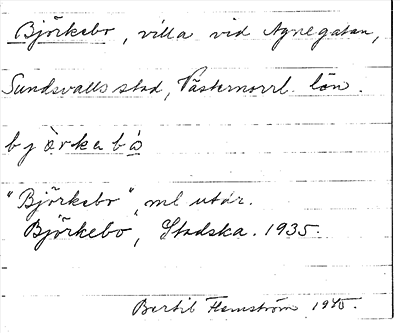 Björkebo, villa vid Agnegatan,
Sundsvalls stad, Västernorrl. län.
bjö̀rkabó
"Björkebo", ml utár.
Björkebo, Stadska. 1935.
Bertil Flemström 1945.